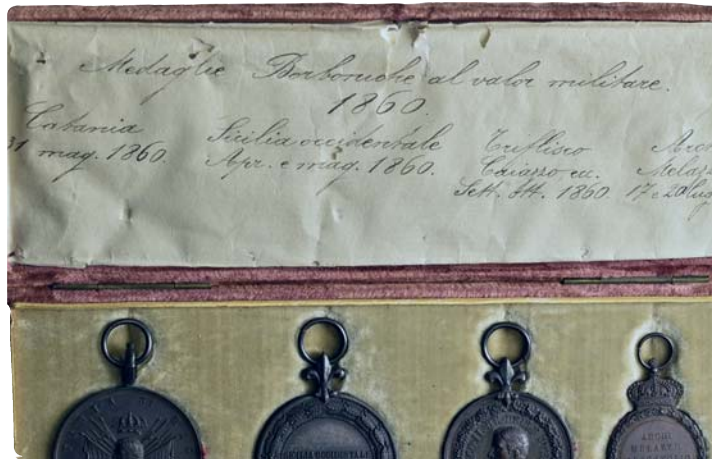 Medaglie Borboniche al valor militare.
1860.
Catania
31 mag. 1860.
Sicilia occidentale
Apr. e mag. 1860.
Triflisco
Caiazzo ec.
Sett. Ott. 1860.
17 e 20 lug
ARCHI
MELAZZO